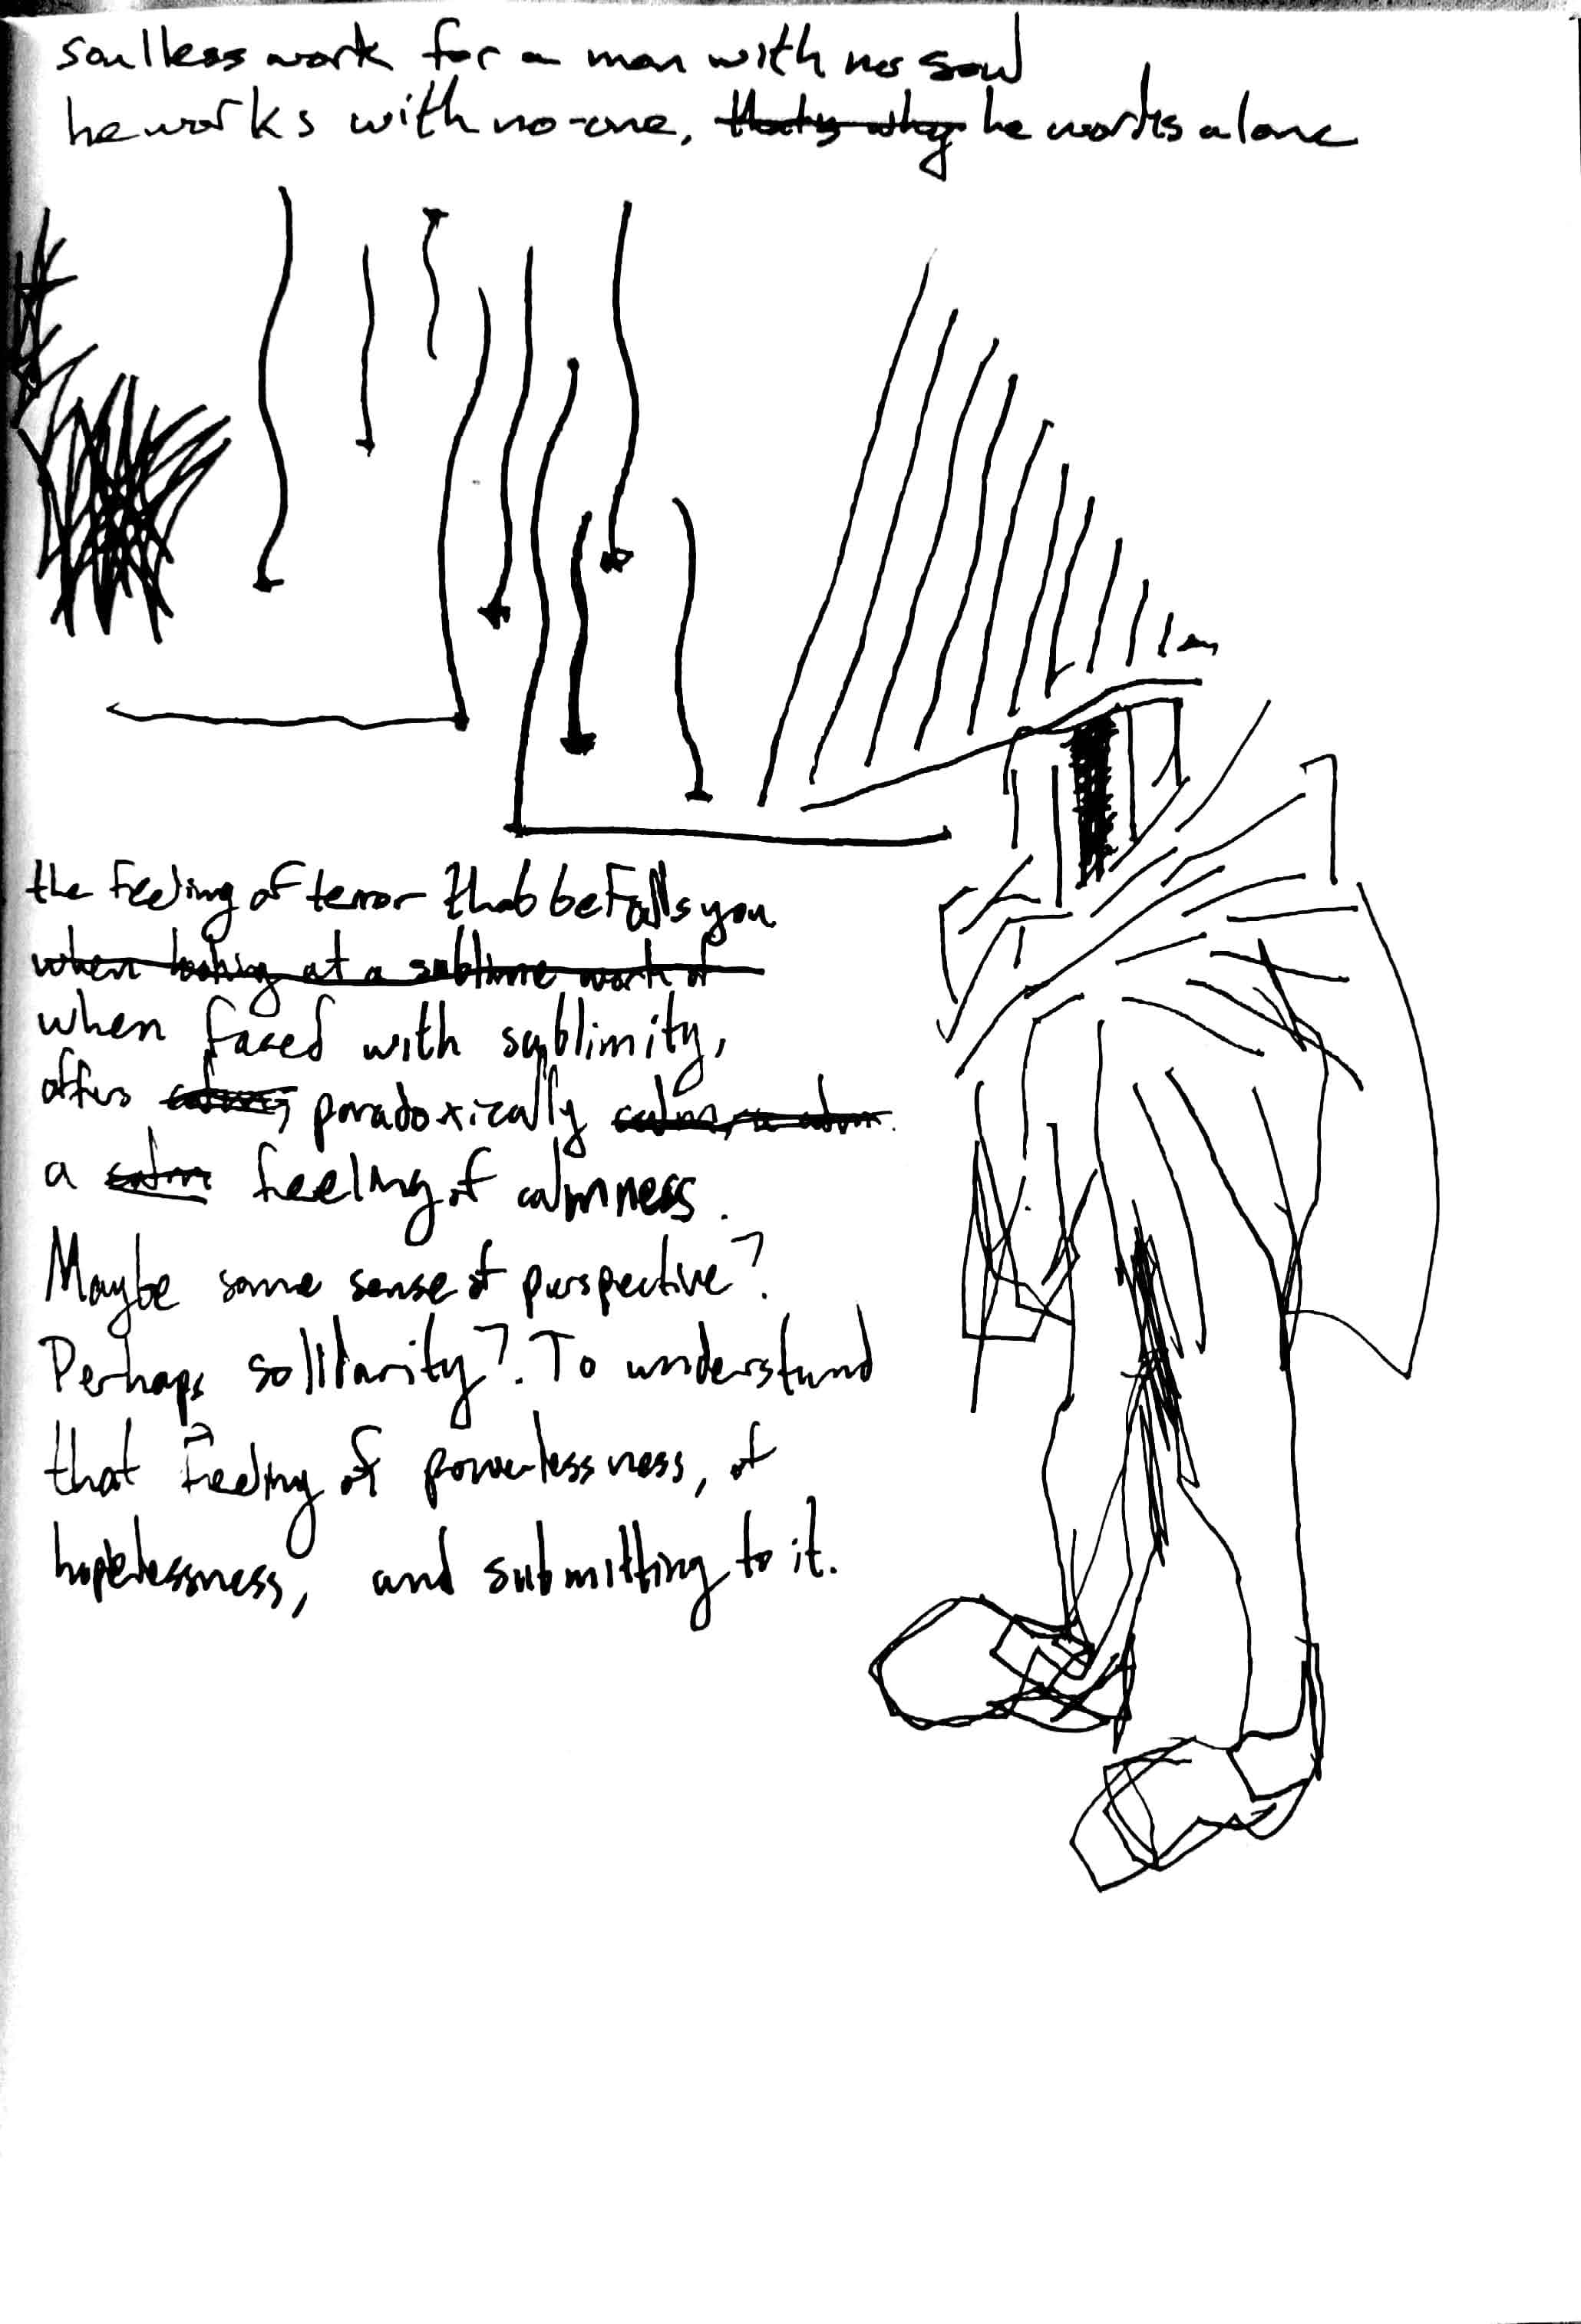 soulless work for a man with no soul
he works with no-one, thats why he works alone
the feeling of terror that befalls you
when looking at a sublime work of
when faced with sublimity,
offers calmness paradoxically calm, a calm
a calm feeling of calmness.
Maybe some sense of perspective?
Perhaps solidarity? To understand
that feeling of powerlessness, of
hopelessness, and submitting to it.